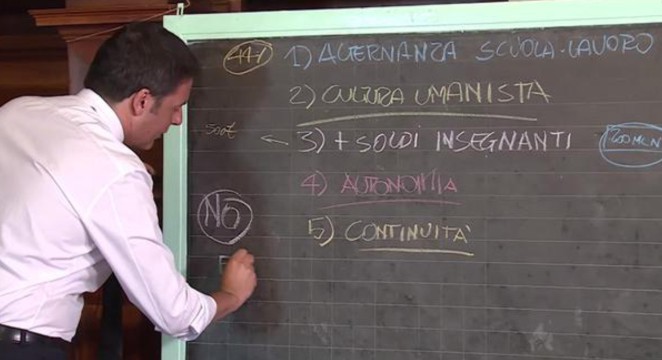 1) ALTERNANZA SCUOLA-LAVORO
2) CULTURA UMANISTA
← 3) + SOLDI INSEGNANTI
4) AUTONOMIA
NO
5) CONTINUITA'